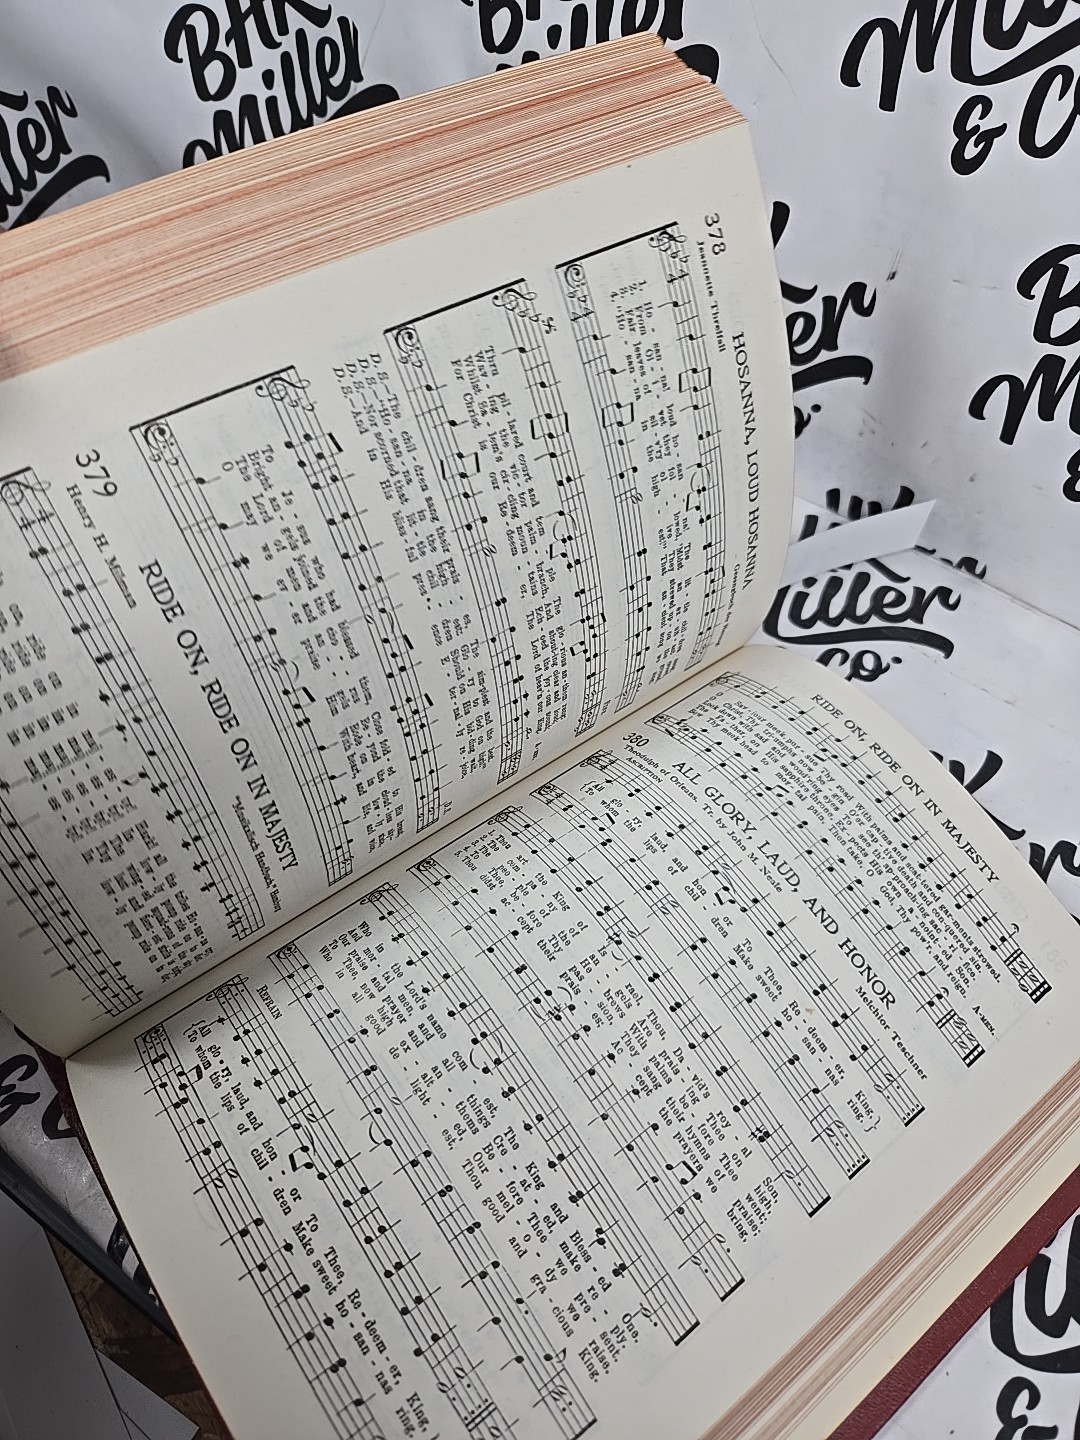 BAK
Miller
& Co.
378
HOSANNA, LOUD HOSANNA
Jeannette Threlfall
1. Ho - san - na! loud ho - san - na! The lit - tle chil - dren
From Ol - i - vet they fol - lowed, 'Midst
Fair leaves of sil - v'ry ol - ive They strewed up - on the
"Ho - san - na in the high - est!" That an - cient song we
Thru pil - lared court and tem - ple The glo - rious an - them rang;
Wav - ing the vic - tor palm - branch, And shout - ing clear and loud;
Whilst Sa - lem's cir - cling moun - tains Ech - oed the joy - ous sound;
For Christ is our Re - deem - er, The Lord of heav'n our King,
D. S.—The chil - dren sang their prais - es, The sim - plest and the best.
D. S.—"Ho - san - na in the high - est: Glo - ry to God on high!"
D. S.—Nor scorned that lit - tle chil - dren Should on His bid - ding wait.
D. S.—And in His bliss - ful pres - ence E - ter - nal - ly re - joice.
To Je - sus who had blessed them, Close fold - ed to His breast,
Bright an - gels joined the cho - rus, Be - yond the cloud - less sky—
The Lord of men and an - gels Rode on in low - ly state,
O may we ev - er praise Him With heart, and life, and voice,
379
RIDE ON, RIDE ON IN MAJESTY
Henry H. Milman
RIDE ON, RIDE ON IN MAJESTY
Sav - iour meek, pur - sue Thy road With palms and scat - tered gar - ments strowed.
Christ, Thy tri - umphs now be - gin O'er cap - tive death and con - quered sin.
Look down with sad and wond'ring eyes To see th' ap - proach - ing sac - ri - fice.
Fa - ther on His sapphire throne, Ex - pects His own a - noint - ed Son.
Bow Thy meek head to mor - tal pain, Then take, O God, Thy pow'r, and reign.
A-MEN.
380
ALL GLORY, LAUD, AND HONOR
Theodulph of Orleans. Tr. by John M. Neale
Melchior Teschner
ASCRIPTION
{All glo - ry, laud, and hon - or To Thee, Re - deem - er, King,}
{To whom the lips of chil - dren Make sweet ho - san - nas ring.}
1. Thou art the King of Is - rael, Thou, Da - vid's roy - al Son,
2. The com - pa - ny of an - gels Are prais - ing Thee on high,
3. The peo - ple of the He - brews With palms be - fore Thee went;
4. To Thee, be - fore Thy pas - sion, They sang their hymns of praise;
5. Thou didst ac - cept their prais - es; Ac - cept the prayers we bring,
Who in the Lord's name com - est, The King and Bless - ed One.
And mor - tal men, and all things Cre - at - ed, make re - ply,
Our praise and prayer and an - thems Be - fore Thee we pre - sent.
To Thee, now high ex - alt - ed, Our mel - o - dy we raise.
Who in all good de - light - est, Thou good and gra - cious King.
REFRAIN
{All glo - ry, laud, and hon - or To Thee, Re - deem - er, King,}
{To whom the lips of chil - dren Make sweet ho - san - nas ring.}